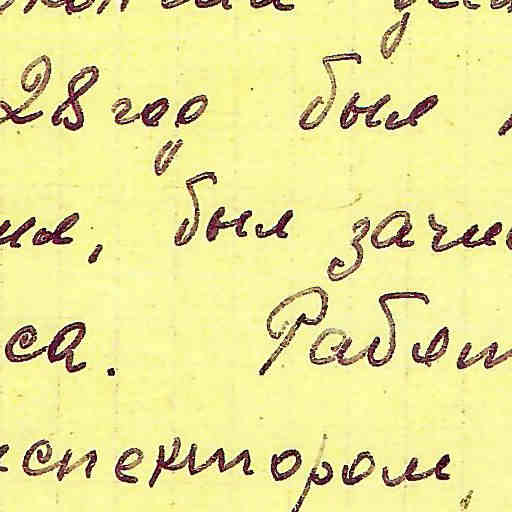 28 году был
ия, был зачис
са. Работ
нспектором,